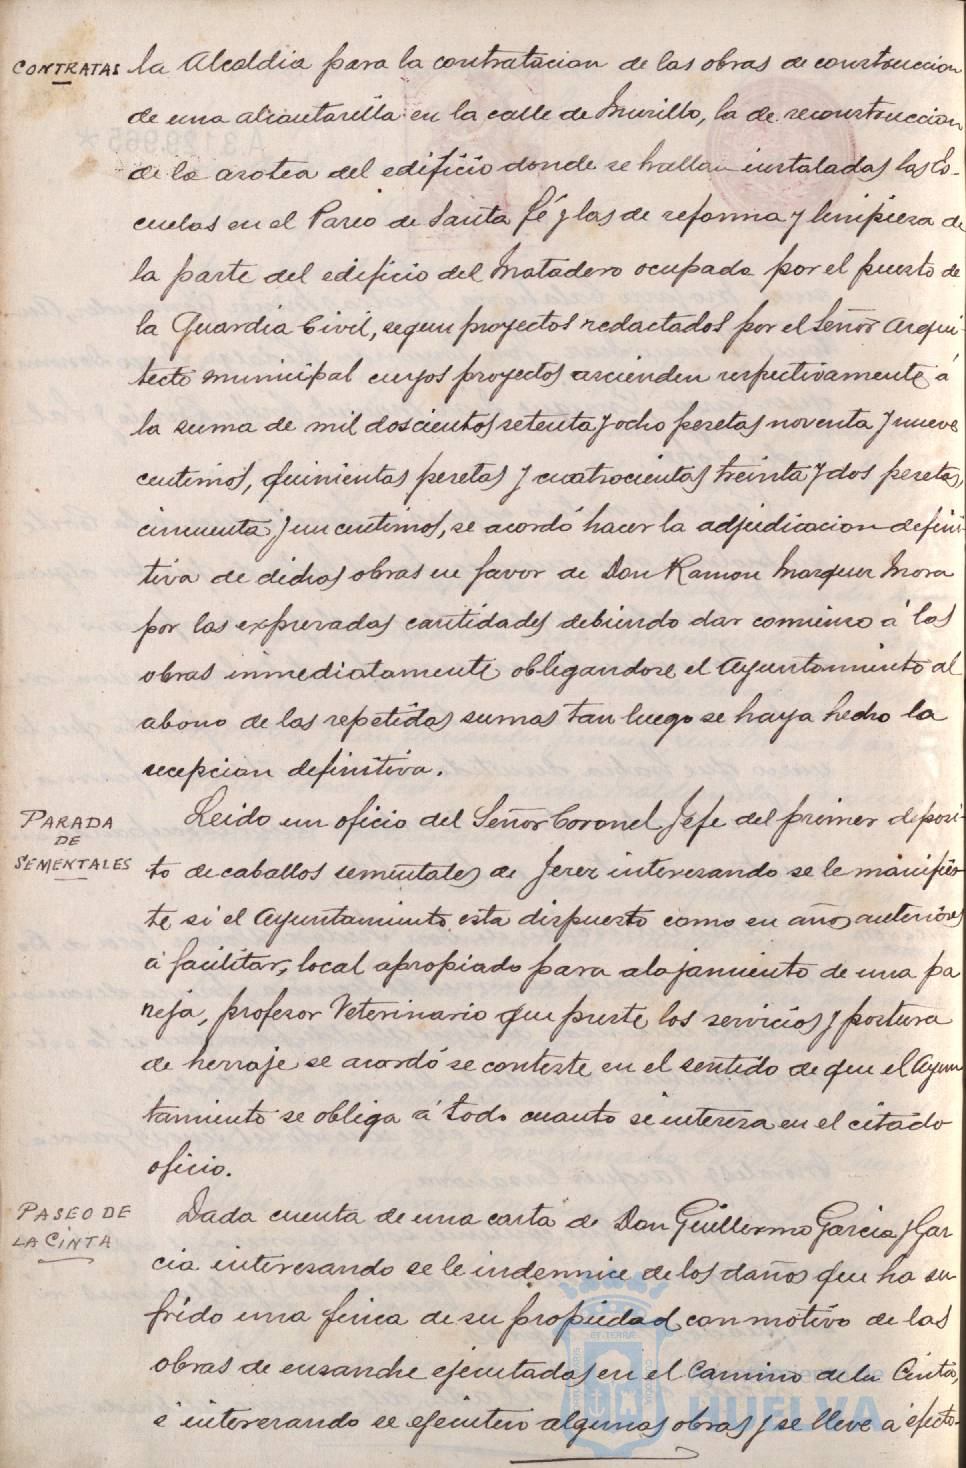 CONTRATAS
la Alcaldia para la contratacion de las obras de construccion
de una alcantarilla en la calle de Murillo, la de reconstruccion
de la azotea del edificio donde se hallan instaladas las Es-
cuelas en el Paseo de Santa Fé y las de reforma y limpieza de
la parte del edificio del Matadero ocupada por el puesto de
la Guardia Civil, segun proyectos redactados por el Señor Arqui-
tecto municipal cuyos proyectos ascienden respectivamente á
la suma de mil doscientos setenta y ocho pesetas noventa y nueve
centimos, quinientas pesetas y cuatrocientas treinta y dos pesetas,
cincuenta y un centimos, se acordó hacer la adjudicacion defini-
tiva de dichas obras en favor de Don Ramon Marquez Mora
por las expresadas cantidades debiendo dar comienzo á las
obras inmediatamente obligandose el Ayuntamiento al
abono de las repetidas sumas tan luego se haya hecho la
recepcion definitiva.
PARADA
DE
SEMENTALES
Leido un oficio del Señor Coronel Jefe del primer deposi-
to de caballos sementales de Jerez interesando se le manifies-
te si el Ayuntamiento esta dispuesto como en años anteriores
á facilitar, local apropiado para alojamiento de una pa
reja, profesor Veterinario que preste los servicios y postura
de herraje se acordó se conteste en el sentido de que el Ayun
tamiento se obliga á todo cuanto se interesa en el citado
oficio.
PASEO DE
LA CINTA
Dada cuenta de una carta de Don Guillermo Garcia y Gar
cia interesando se le indemnice de los daños que ha su-
frido una finca de su propiedad con motivo de las
obras de ensanche ejecutadas en el Camino de la Cinta,
é interesando se ejecuten algunas obras y se lleve á efecto
HUELVA